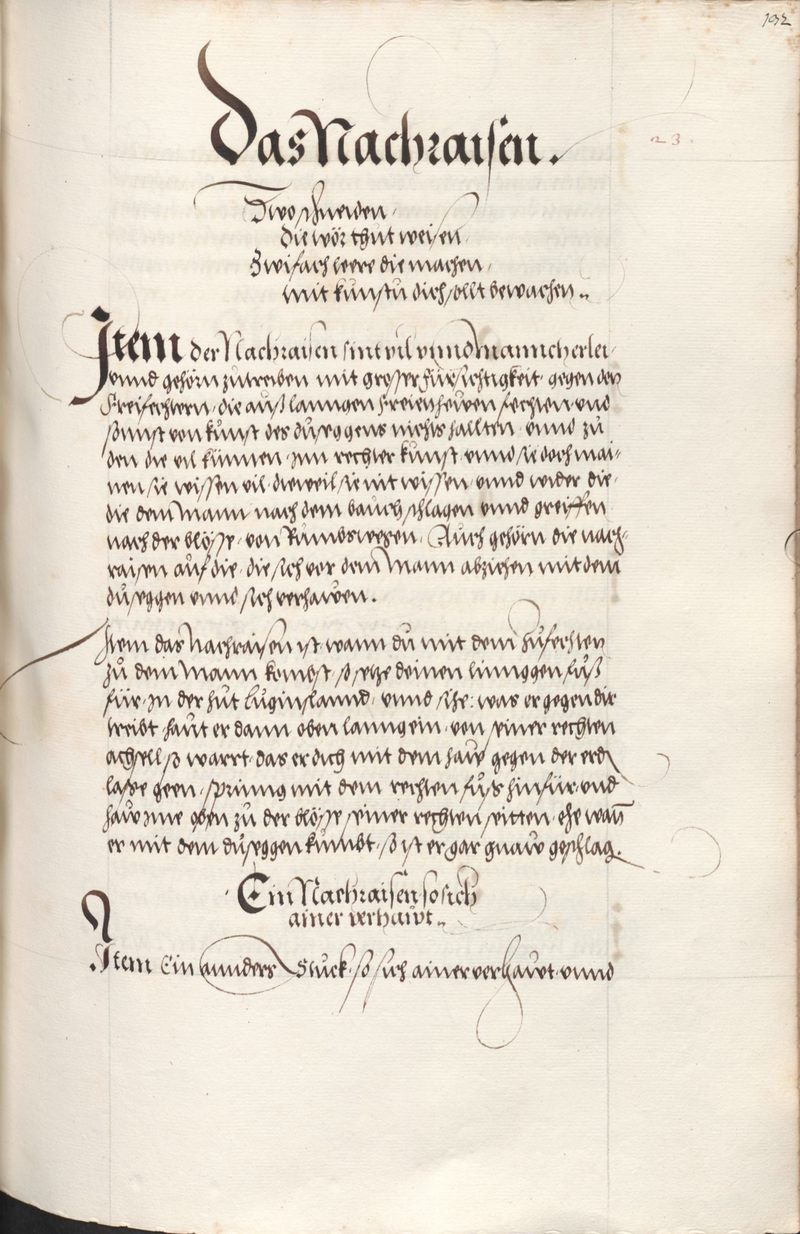 192
23.
Das Nachraisen.
Zwo schneiden,
die wör thut weisen
Zwifach leere die machen,
mit kunstu dich sollt bewachen.
Item der Nachraisen sint vil vnnd mannicherlei,
vnnd gehörn zutreiben mit grosser fürsichtigkeit, gegen den
Freifechtern, die auß lanngen freien hewen fechten, vnd
sunnst von kunst des duseggens nichts hallten, vnnd zu
den die vil künnen, inn rechter kunst vnnd sie doch mai-
nen sie wissen vil, dieweil sie nit wissen, vnnd wider die,
die dem Mann nach dem bauch schlagen vnnd greiffen
nach der blösse, von Rumbswegen. Auch gehörn die nach-
raisen auf die, die sich vor dem Mann abziehen mit dem
duseggen vnnd sich verhawen.
Item das Nachraisen ist, wann du mit dem zufechten
zu dem Mann kombst, so setze deinen linnggen fuß
für, in der hut luginslannd, vnnd sihe: was er gegen dir
treibt, haut er dann oben lanng ein, von seiner rechten
achsell, so warrt, das er dich mit dem haw gegen der erd
lasse geen, spring mit dem rechten fuß hinfür, vnd
haw ime oben zu der blösse seiner rechten seitten, ehe wan
er mit dem duseggen kumbt, so ist er gar gnaw geschlag.
Ein Nachraisen so sich
ainer verhawt.
Item Ein annders Stuck, so sich ainer verhawt, vnnd